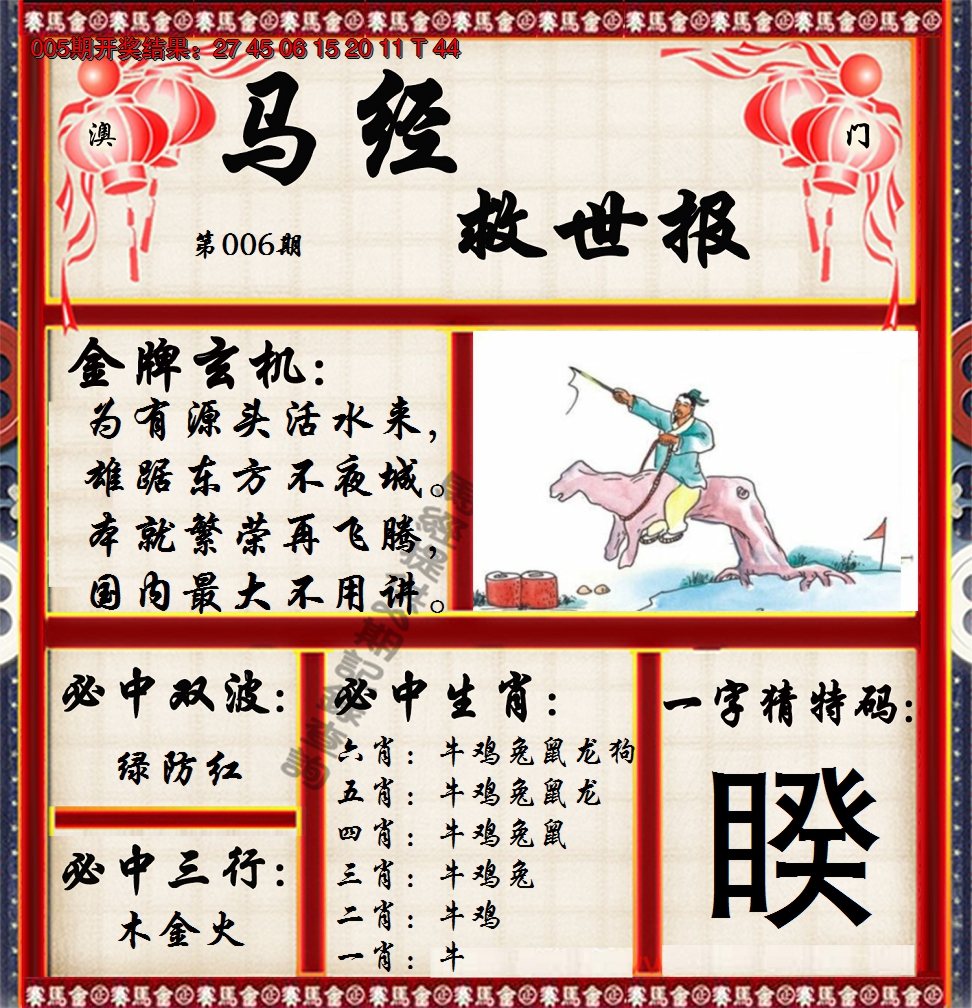 005期开奖结果：27 45 06 15 20 11 T 44
澳
门
马经
救世报
第006期
金牌玄机：
为有源头活水来，
雄踞东方不夜城。
本就繁荣再飞腾，
国内最大不用讲。
必中双波：
绿防红
必中三行：
木金火
必中生肖：
六肖：牛鸡兔鼠龙狗
五肖：牛鸡兔鼠龙
四肖：牛鸡兔鼠
三肖：牛鸡兔
二肖：牛鸡
一肖：牛
一字猜特码：
睽